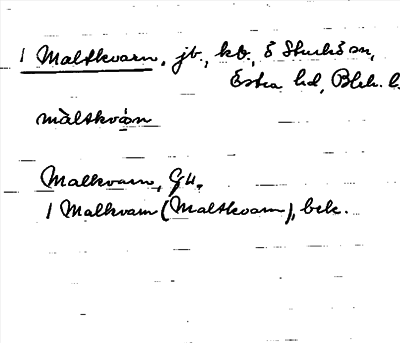 1 Maltkvarn, jb., kb., S Sturkö sn,
Östra hd, Blek. l.
màltkvàn
Malkvarn, GK.
1 Malkvarn (Maltkvarn), bek.